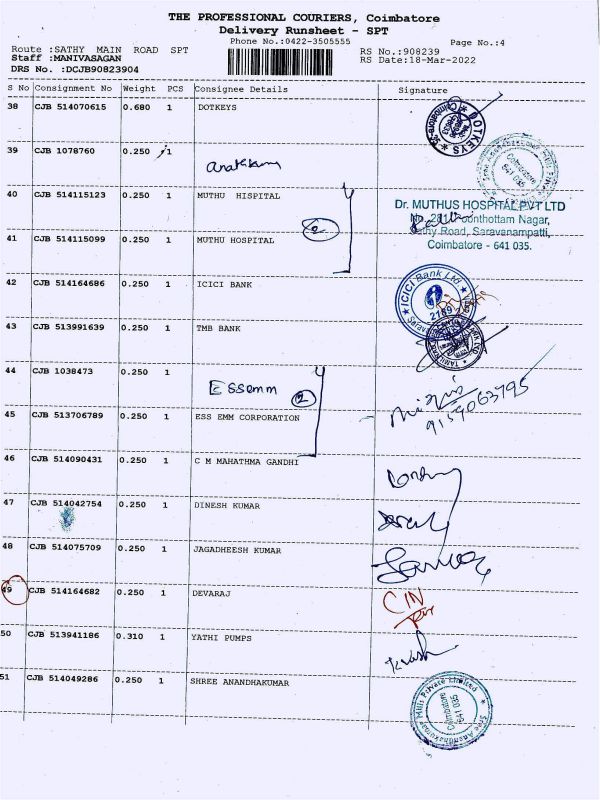 THE PROFESSIONAL COURIERS, Coimbatore
Delivery Runsheet - SPT
Phone No.:0422-3505555
Page No.:4
Route :SATHY MAIN ROAD SPT
RS No.:908239
Staff :MANIVASAGAN
RS Date:18-Mar-2022
DRS No. :DCJB90823904
S No Consignment No Weight PCS Consignee Details Signature
38 CJB 514070615 0.680 1 DOTKEYS
DOTKEYS
39 CJB 1078760 0.250 1
40 CJB 514115123 0.250 1 MUTHU HISPITAL
Dr. MUTHUS HOSPITAL PVT LTD
No. 281, Poonthottam Nagar,
Sathy Road, Saravanampatti,
Coimbatore - 641 035.
2
41 CJB 514115099 0.250 1 MUTHU HOSPITAL
42 CJB 514164686 0.250 1 ICICI BANK
ICICI Bank Ltd
2189
43 CJB 513991639 0.250 1 TMB BANK
44 CJB 1038473 0.250 1
Essemm
2
9159063795
45 CJB 513706789 0.250 1 ESS EMM CORPORATION
46 CJB 514090431 0.250 1 C M MAHATHMA GANDHI
47 CJB 514042754 0.250 1 DINESH KUMAR
48 CJB 514075709 0.250 1 JAGADHEESH KUMAR
49 CJB 514164682 0.250 1 DEVARAJ
50 CJB 513941186 0.310 1 YATHI PUMPS
51 CJB 514049286 0.250 1 SHREE ANANDHAKUMAR
Coimbatore
641 035